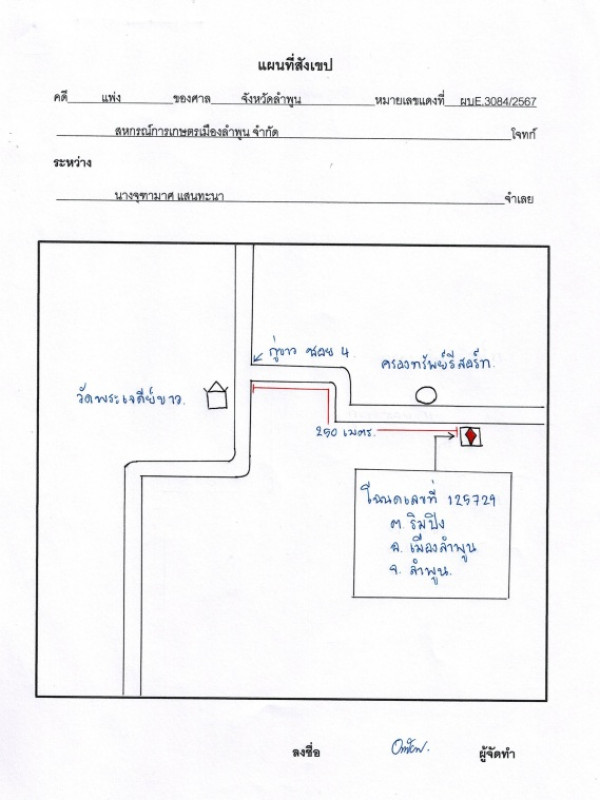 แผนที่สังเขป
คดี แพ่ง ของศาล จังหวัดลำพูน หมายเลขแดงที่ ผบE.3084/2567
สหกรณ์การเกษตรเมืองลำพูน จำกัด โจทก์
ระหว่าง
นางจุฑามาศ แสนทะนา จำเลย
กู่ขาว ซอย 4
ครองทรัพย์รีสอร์ท.
วัดพระเจดีย์ขาว.
250 เมตร.
โฉนดเลขที่ 125729
ต. ริมปิง
อ. เมืองลำพูน
จ. ลำพูน.
ลงชื่อ ผู้จัดทำ